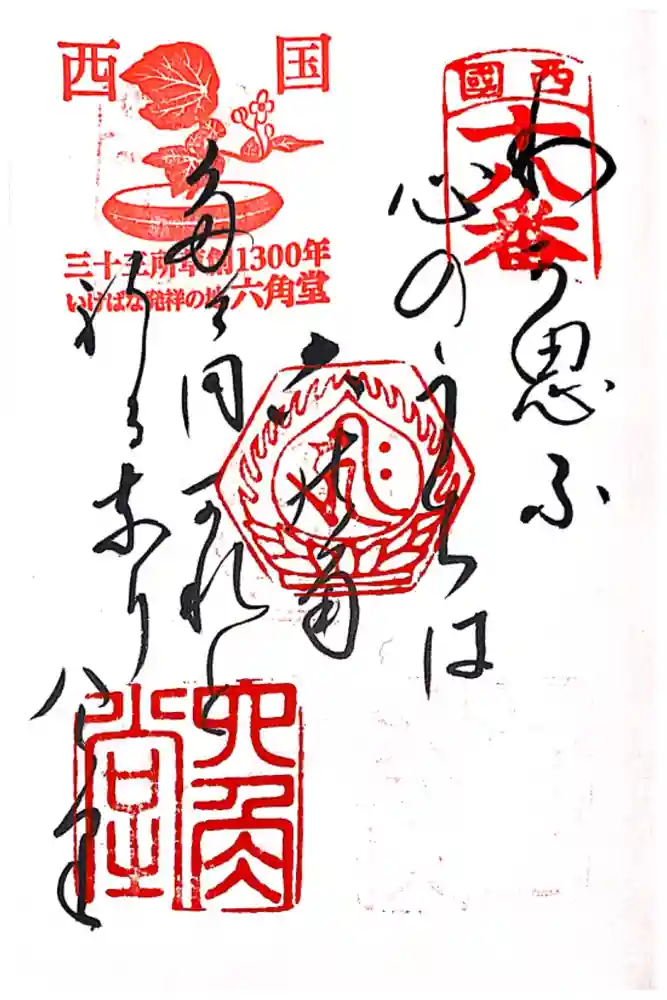 西國
十八番
西国
三十三所草創1300年
いけばな発祥の地 六角堂
わか思ふ
心のうちは
六の角
たゝ円かれと
祈るなり
けり
六角堂